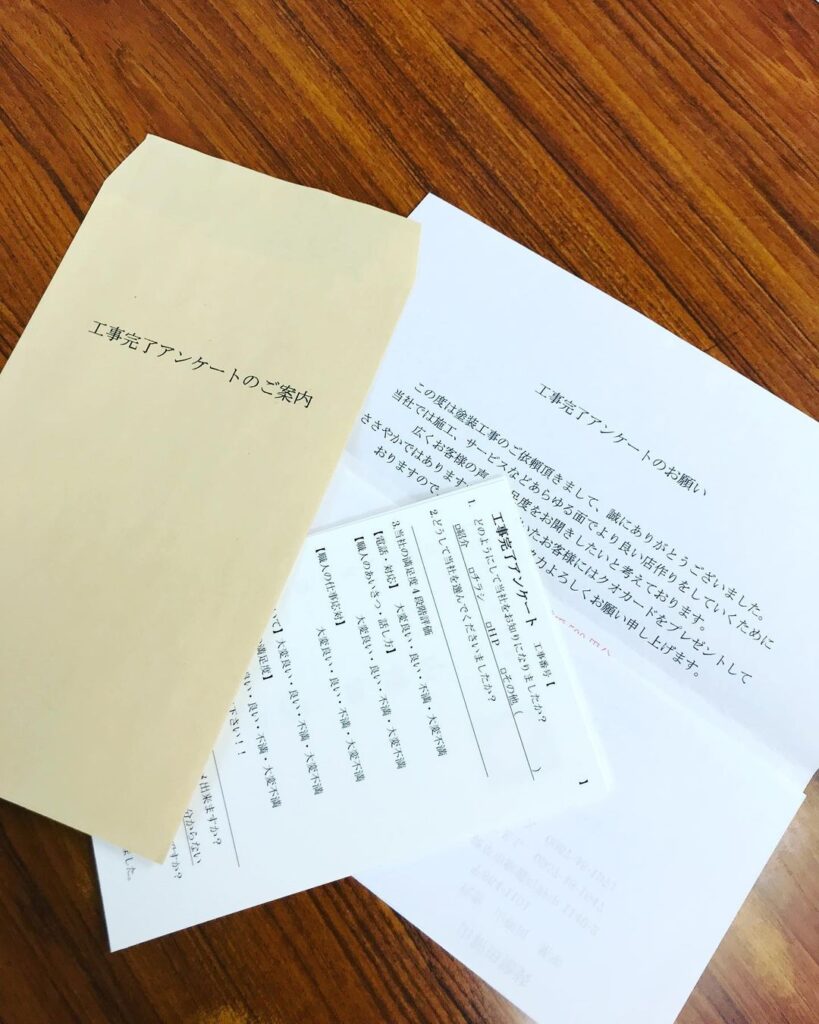 工事完了アンケートのご案内
工事完了アンケートのお願い
この度は塗装工事のご依頼頂きまして、誠にありがとうございました。
当社では施工、サービスなどあらゆる面でより良い店作りをしていくために
広くお客様の声 足度をお聞きしたいと考えております。
ささやかではあります いたお客様にはクオカードをプレゼントして
おりますので、 力よろしくお願い申し上げます。
工事完了アンケート 工事番号【 】
1. どのようにして当社をお知りになりましたか?
□紹介 □チラシ □HP □その他（ ）
2.どうして当社を選んでくださいましたか?
3.当社の満足度4段階評価
【電話・対応】 大変良い・良い・不満・大変不満
【職人のあいさつ・話し方】 大変良い・良い・不満・大変不満
【職人の仕事応対】 大変良い・良い・不満・大変不満
いて】大変良い・良い・不満・大変不満
満足度】 良い・良い・不満・大変不満
下さい！！
出来ますか?
分からない
ですか?
ました。